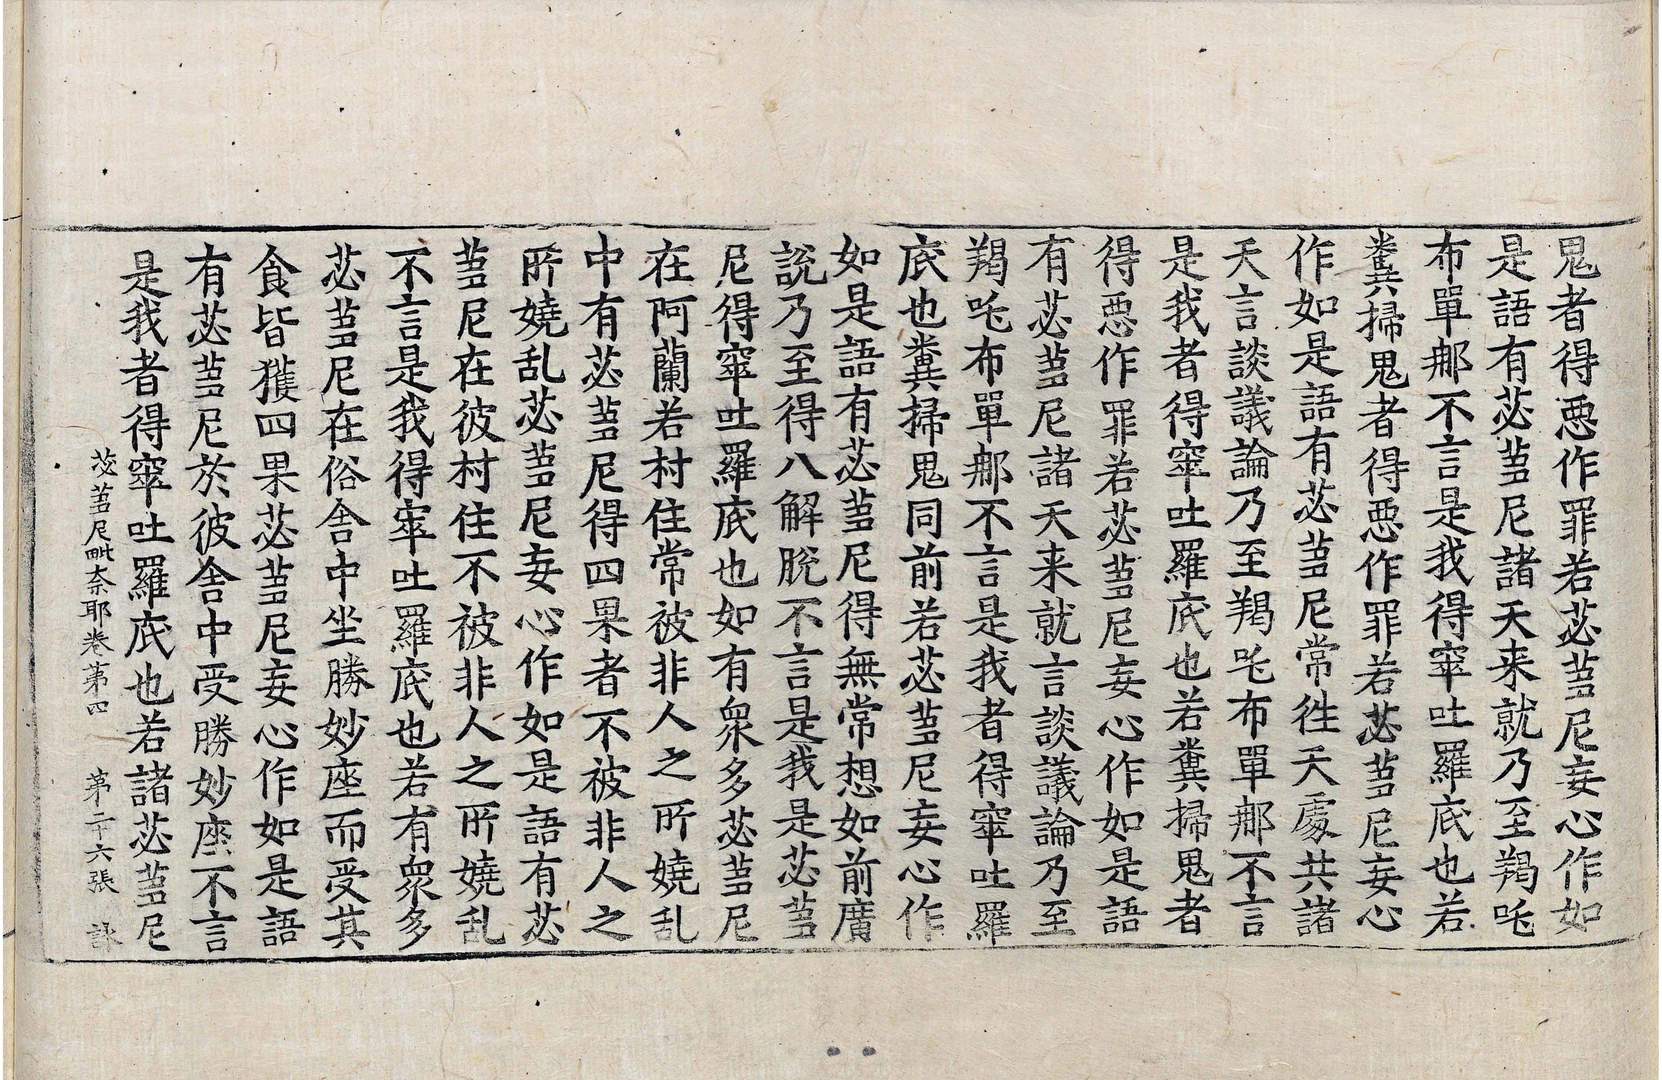 鬼者得惡作罪若苾蒭尼妄心作如
是語有苾蒭尼諸天来就乃至羯吒
布單那不言是我得窣吐羅底也若
糞掃鬼者得惡作罪若苾蒭尼妄心
作如是語有苾蒭尼常往天處共諸
天言談議論乃至羯吒布單那不言
是我者得窣吐羅底也若糞掃鬼者
得惡作罪若苾蒭尼妄心作如是語
有苾蒭尼諸天来就言談議論乃至
羯吒布單那不言是我者得窣吐羅
底也糞掃鬼同前若苾蒭尼妄心作
如是語有苾蒭尼得無常想如前廣
說乃至得八解脫不言是我是苾蒭
尼得窣吐羅底也如有衆多苾蒭尼
在阿蘭若村住常被非人之所嬈乱
中有苾蒭尼得四果者不被非人之
所嬈乱苾蒭尼妄心作如是語有苾
蒭尼在彼村住不被非人之所嬈乱
不言是我得窣吐羅底也若有衆多
苾蒭尼在俗舍中坐勝妙座而受其
食皆獲四果苾蒭尼妄心作如是語
有苾蒭尼於彼舍中受勝妙座不言
是我者得窣吐羅底也若諸苾蒭尼
茨蒭尼毗奈耶卷第四 第二十六張 詠